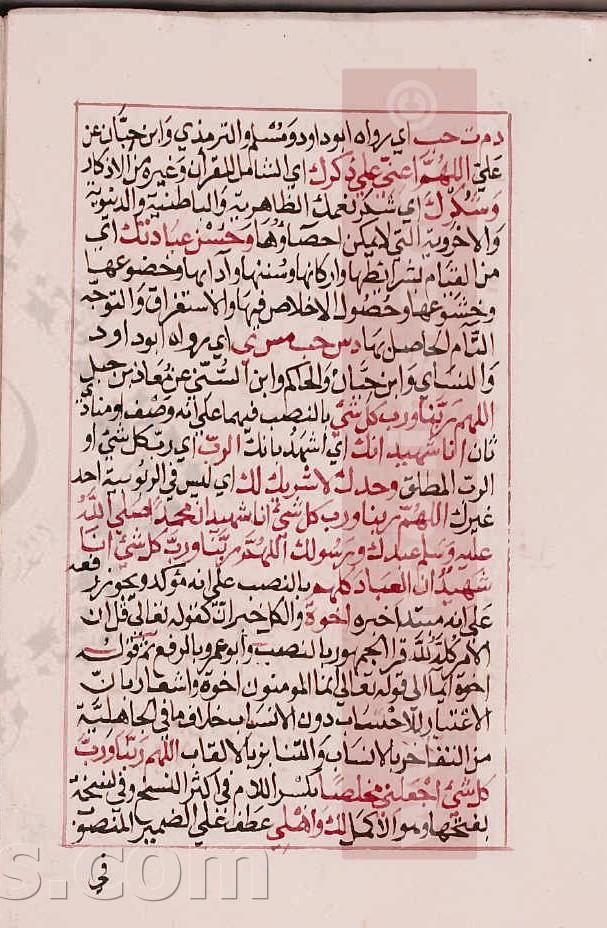 د م ت حب اي رواه ابو داود ومسلم والترمذي وابن حبان عن
علي اللهم اعني على ذكرك اي الشامل للقران وغيره من الاذكار
وشكرك اي شكر نعمك الظاهرية والباطنية والدنيوية
والاخروية التي لا يمكن احصاؤها وحسن عبادتك اي
من القيام بشرائطها واركانها وسننها وآدابها وخضوعها
وخشوعها وحصول الاخلاص فيها والاستغراق والتوجه
التام الحاصل بها د س حب مس ى اي رواه ابو داود
والنساي وابن حبان والحاكم وابن السني عن معاذ بن جبل
اللهم ربنا ورب كل شي بالنصب فيهما على انه وصف او منادي
ثان انا شهيد انك اي اشهد بانك الرب اي رب كل شي او
الرب المطلق وحدك لا شريك لك اي ليس في الربوبية احد
غيرك اللهم ربنا ورب كل شي انا شهيد ان محمدا صلى الله
عليه وسلم عبدك ورسولك اللهم ربنا ورب كل شي انا
شهيد ان العباد كلهم بالنصب على انه مؤكد ويجوز رفعه
على انه مبتدا خبره اخوة والكل خبر ان كقوله تعالى قل ان
الامر كله لله قرا الجمهور بالنصب وابو عمرو بالرفع ثم قوله
اخوة ايما الى قوله تعالى انما المومنون اخوة واشعار بان
الاعتبار للاحتساب دون الانساب خلاف ما في الجاهلية
من التفاخر بالانساب والتنابز بالالقاب اللهم ربنا ورب
كل شي اجعلني مخلصا بكسر اللام في اكثر النسخ وفي نسخة
بفتحها وهو الاكمل لك واهلي عطف على الضمير المنصوب
في
s.com